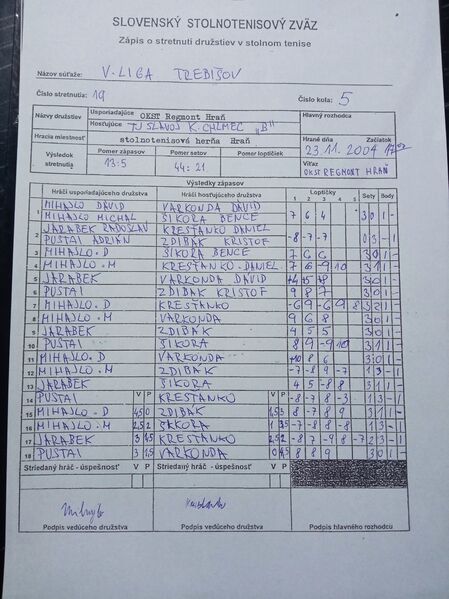 SLOVENSKÝ STOLNOTENISOVÝ ZVÄZ
Zápis o stretnutí družstiev v stolnom tenise
Názov súťaže: V. LIGA TREBIŠOV
Číslo stretnutia: 19 Číslo kola: 5
Názvy družstiev Usporiadajúce OKST Regmont Hraň Hlavný rozhodca
Hosťujúce TJ SLAVOJ K. CHLMEC "B"
Hracia miestnosť stolnotenisová herňa Hraň Hrané dňa 23.11.2004 Začiatok
Výsledok stretnutia Pomer zápasov 13:5 Pomer setov 44:21 Pomer loptičiek Víťaz OKST REGMONT HRAŇ
Výsledky zápasov
Hráči usporiadajúceho družstva Hráči hosťujúceho družstva Loptičky 1 2 3 4 5 Sety Body
1 MIHAJLO DÁVID VARKONDA DAVID
MIHAJLO MICHAL SIKORA BENCE 7 6 4 3 0 1 -
2 JARABEK RADOSLAV KREŠTANKO DANIEL
PUSTAI ADRIÁN ZDIBÁK KRISTOF -8 -7 -7 0 3 - 1
3 MIHAJLO.D SIKORA BENCE 7 6 6 3 0 1 -
4 MIHAJLO.M KREŠTANKO DANIEL 7 6 -9 10 3 1 1 -
5 JARABEK VARKONDA DAVID 3 0 1 -
6 PUSTAI ZDIBÁK KRISTOF 9 8 7 3 0 1 -
7 MIHAJLO.D KREŠTANKO -6 9 -6 9 8 3 2 1 -
8 MIHAJLO.M VARKONDA 9 6 8 3 0 1 -
9 JARABEK ZDIBÁK 4 5 5 3 0 1 -
10 PUSTAI SIKORA 8 9 -9 10 3 1 1 -
11 MIHAJLO.D VARKONDA 10 8 6 3 0 1 -
12 MIHAJLO.M ZDIBÁK -7 -8 9 -7 1 3 - 1
13 JARABEK SIKORA 4 5 -8 8 3 1 1 -
14 PUSTAI V P KREŠTANKO V P -8 -7 8 -3 1 3 - 1
15 MIHAJLO.D 4,5 0 ZDIBÁK 1,5 3 8 -7 8 9 3 1 1 -
16 MIHAJLO.M 2,5 2 SIKORA 1 3,5 -7 -8 8 -8 1 3 - 1
17 JARABEK 3 1,5 KREŠTANKO 2,5 2 -8 7 -9 8 -7 2 3 - 1
18 PUSTAI 3 1,5 VARKONDA 0 4,5 8 8 9 3 0 1 -
Striedaný hráč - úspešnosť V P Striedaný hráč - úspešnosť V P
Podpis vedúceho družstva Podpis vedúceho družstva Podpis hlavného rozhodcu